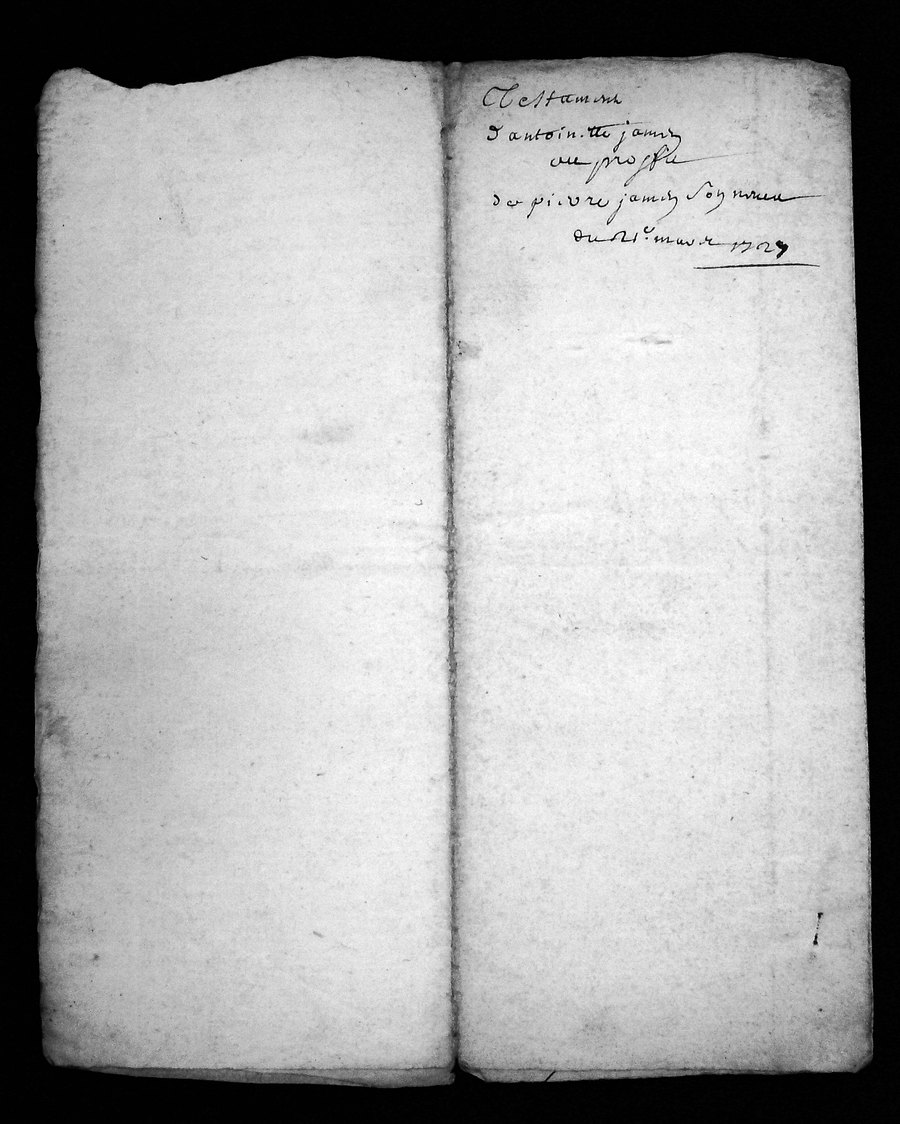 Testament
d'antoinette jamen
au proffit
de pierre jamen son neveu
du 21e mars 1727